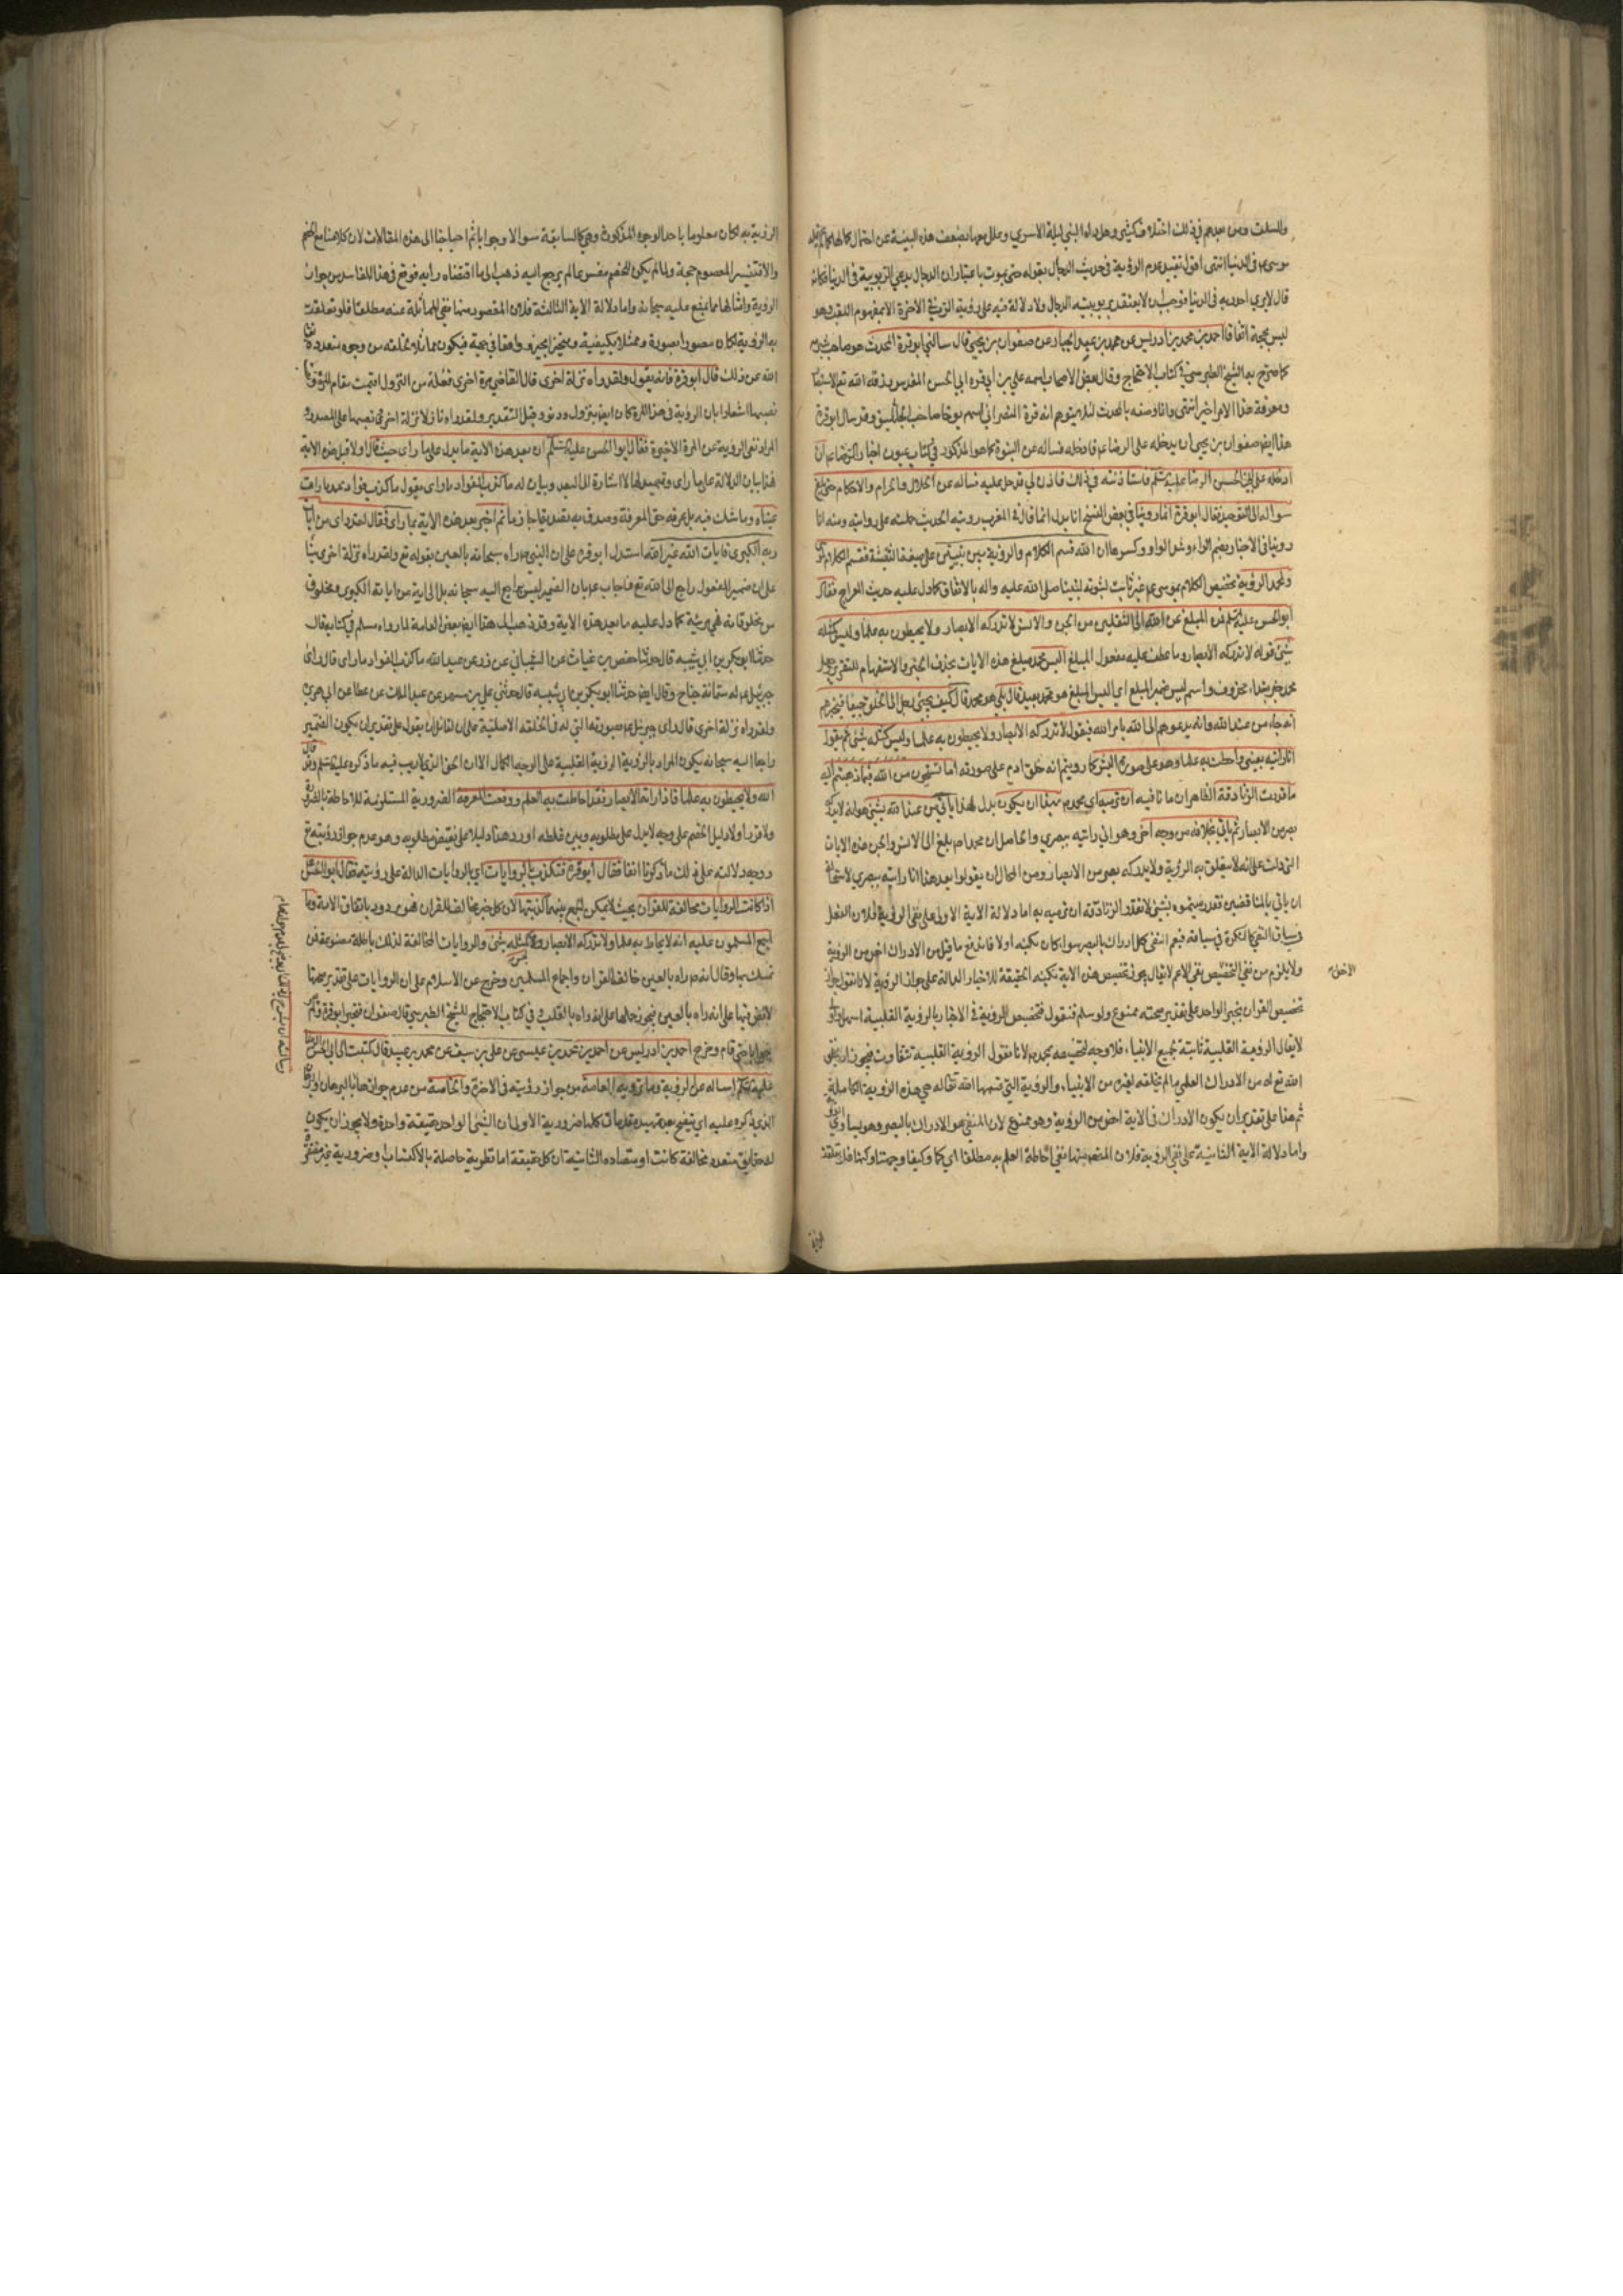 والسلف ومن بعدهم في ذلك اختلاف كثير وهل راه النبي ليلة الاسري
موسى في الدنيا انتهى اقول تقييد عدم الرؤية في حديث الدجال بقوله حتى يموت باعتباران الدجال يدعي الربوبية في الدنيا
قال لا يرى احد ربه في الدنيا فوجب ان لا يعتقد بربوبيته الدجال ولا دلالة فيه على رؤية الرب في الاخرة الا بمفهوم اللقب وهو
ليس بحجة اتفاقا احمد بن ادريس عن محمد بن عبد الجبار عن صفوان بن يحيى قال سالني ابو قرة المحدث هو صاحب شبرمة
كما صرح به الشيخ الطبرسي في كتاب الاحتجاج وقال بعض الاصحاب اسمه علي بن أبي قره ابي الحسن المحدث رزقه الله تع الاستبصار
ومعرفة هذا الامر اخيرا انتهى وانما وصفه بالمحدث لئلا يتوهم انه قرة النصراني اسمه يوحنا صاحب الجاثليق وقد سال ابو قرة
هذا ايض صفوان بن يحيى ان يدخله على الرضا ع فادخله فساله عن النبوة كما هو المذكور في كتاب عيون اخبار الرضا ع ان
ادخله على ابي الحسن الرضا عليه السلم فاستأذنته في ذلك فاذن لي فدخل عليه فساله عن الحلال والحرام والاحكام حتى بلغ
سواله الى التوحيد فقال ابو قرة انا روينا في بعض النسخ انا بدل انما قال في المغرب رويته الحديث حملته على روايته ومنه انا
روينا في الاخبار بضم الراء وشد الواو وكسرها ان الله قسم الكلام والرؤية بين نبيين على صيغة التثنية فقسم الكلام لموسى
ولمحمد الرؤية تخصيص الكلام بموسى ع غير ثابت لثبوته لنبينا صلى الله عليه واله بالاتفاق كما دل عليه حديث المعراج فقال
ابو الحسن عليه السلم فمن المبلغ عن الله الى الثقلين من الجن والانس لا تدركه الابصار ولا يحيطون به علما وليس كمثله
شئ قوله لا تدركه الابصار وما عطف عليه مفعول المبلغ اليس محمد مبلغ هذه الايات بحذف الخبر والاستفهام للتقرير
محمد خبر مبتداء محذوف واسم ليس ضمير المبلغ اي اليس المبلغ هو محمد قال بلى هو محمد قال كيف يجئ رجل الى الخلق جميعا فيخبرهم
انه جاء من عند الله وانه يدعوهم الى الله بامر الله فيقول لا تدركه الابصار ولا يحيطون به علما وليس كمثله شئ ثم يقول
انا رايته بعيني واحطت به علما وهو على صورة البشر كما رويتم انه خلق ادم على صورته اما تستحيون من الله
ما قدرت الزنادقة الظاهر ان ما نافيه ان ترميه اي محمد بهذا ان يكون بدل لهذا ياتي من عند الله بشئ هو انه لا يدركه
بصر من الابصار ثم ياتي بخلافه من وجه اخر وهو اني رايته ببصري والحاصل ان محمدا ص بلغ الى الانس والجن هذه الايات
التي دلت على انه لا يتعلق به الرؤية ولا يدركه بصر من الابصار ومن المحال ان يقول بعد هذا انا رايته ببصري لاستحالة
ان ياتي بالمتناقضين فقد رميتموه بشئ لا تقدر الزنادقة ان ترميه به اما دلالة الاية الاولى على نفي الرؤية فلان الفعل
في سياق النفي كالنكرة في سياقه فيعم انتفى كل ادراك بالبصر سواء كان بكنهه اولا فاندفع ما قيل من الادراك اخص من الرؤية
ولا يلزم من نفي الاخص نفي الاعم لا يقال يجوز تخصيص هذه الاية بكنه الحقيقة للاخبار الدالة على جواز الرؤية لانا نقول جواز
تخصيص القران بخبر الواحد على تقدير صحته ممنوع ولو سلم فنقول تخصيص الرؤية في الاخبار بالرؤية القلبية اسهل
لا يقال الرؤية القلبية ثابتة لجميع الانبياء فلا وجه لتخصيصه بمحمد ص لانا نقول الرؤية القلبية تتفاوت فيجوز ان يخلق
الله تع له من الادراك العلمي ما لم يخلقه لغيره من الانبياء والرؤية التي قسمها الله تعالى له هي هذه الرؤية الكاملة
ثم هذا على تقدير ان يكون الادراك في الاية اخص من الرؤية وهو ممنوع لان المنفي هو الادراك بالبصر وهو يساوي الرؤية
واما دلالة الاية الثانية على نفي الرؤية فلان المقصود منها نفي احاطة العلم به مطلقا اي كما وكيفا وجهة وكنها فلو تعلقت
الرؤية به لكان معلوما باحد الوجوه المذكورة وهي كالسابقة سوالا وجوابا ثم احتياجنا الى هذه المقالات لان كلامنا مع الخصم
والا فتفسير المعصوم حجة ولما لم يكن للخصم مفسر عالم يرجع اليه ذهب الى ما اقتضاه رايه فوقع في هذا المفاسد من جواز
الرؤية وامثالها مما يمتنع عليه سبحانه واما دلالة الاية الثالثة فلان المقصود منها نفي المماثلة عنه مطلقا فلو تعلقت
به الرؤية لكان مصورا بصورة وممثلا بكيفية ومتحيزا بحيز وواقعا في جهة فيكون مماثلا لخلقه من وجوه متعددة تع
الله عن ذلك قال ابو قرة فانه يقول ولقد رأه نزلة اخرى قال القاضي مرة اخرى فعلة من النزول اقيمت مقام المرة
نصبها اشعارا بان الرؤية في هذه المرة كان ايض بنزول ودنو وقيل التقدير ولقد راه نازلا نزلة اخرى ونصبها على المصدر و
المراد نفي الريبة عن المرة الاخيرة فقال ابو الحسن عليه السلم ان بعد هذه الاية ما يدل على ما راى حيث قال اولا قبل هذه الاية
هذا بيان الدلالة على ما راى وتمهيد لها لا اشارة الى البعد وبيان له ما كذب الفواد ما راى يقول ما كذب فواد محمد ما رات
عيناه وما شك فيه بل عرفه حق المعرفة وصدق به تصديقا جازما ثم اخبر بعد هذه الاية بما راى فقال لقد راى من ايات
ربه الكبرى فايات الله غير الله استدل ابو قرة على ان النبي ص راه سبحانه بالعين بقوله تع ولقد راه نزلة اخرى بناء
على ان ضمير المفعول راجع الى الله تع فاجاب ع بان الضمير ليس براجع اليه سبحانه بل الى اية من اياته الكبرى ومخلوق
من مخلوقاته هي مرئية كما دل عليه ما بعد هذه الاية وقد ذهب الى هذا ايض بعض العامة لما رواه مسلم في كتابه قال
حدثنا ابو بكر بن ابي شيبه قال حدثنا حفص بن غياث عن الشيباني عن زر عن عبد الله ما كذب الفواد ما راى قال راى
جبرئيل ع له ستمائة جناح وقال ايض حدثنا ابو بكر بن ابي شيبه قال حدثني علي بن مسهر عن عبد الملك عن عطا عن ابي هريرة
ولقد راه نزلة اخرى قال راى جبرئيل ع بصورته التي له في الخلقه الاصلية على ان لقائل ان يقول على تقدير ان يكون الضمير
راجعا اليه سبحانه يكون المراد بالرؤية الرؤية القلبية على الوجه الكمال الا ان الحق الذي لا ريب فيه ما ذكره عليه السلم وقد قال
الله ولا يحيطون به علما فاذا راته الابصار فقد احاطت به العلم ووقعت المعرفة الضرورية المستلزمة للاحاطة بالضرورة
ولا قرر اولا دليل الخصم على وجه لا يدل على مطلوبه وبين غلطه اورد هنا دليلا على نقيض مطلوبه وهو عدم جواز رؤيته تع
ووجه دلالته على ذلك ما ذكرنا انفا فقال أبو قرة فتكذب بالروايات اي الروايات الدالة على رؤيته فقال ابو الحسن
اذا كانت الروايات مخالفة للقران بحيث لا يمكن الجمع بينهما كذبتها لان كل خبر مخالف للقران فهو مردود باتفاق الامة وما
اجمع المسلمون عليه انه لا يحاط به علما ولا تدركه الابصار وليس كمثله شئ والروايات المخالفة لذلك باطلة مصنوعة فمن
تمسك بها وقال انه ص راه بالعين خالف القران واجماع المسلمين وخرج عن الاسلام على ان الروايات على تقدير صحتها
لا نص فيها على انه راه بالعين فيجوز حملها على انه راه بالقلب وفي كتاب الاحتجاج للشيخ الطبرسي قال صفوان فتحير ابو قرة ولم
يحر جوابا حتى قام وخرج احمد بن ادريس عن احمد بن محمد بن عيسى عن علي بن سيف عن محمد بن عبيد قال كتبت الى ابي الحسن الرضا
عليه السلم اساله عن الرؤية وما ترويه العامة والخاصة من جواز رؤيته في الاخرة والخاصة من عدم جوازها بالبرهان
الذي ذكره عليه اي يتضح بعد تمهيد مقدمات كلها ضرورية الاولى ان الشئ الواحد حقيقة واحدة ولا يجوز ان يكون
له حقايق متعدده مخالفة كانت او متضاده الثانية ان كل حقيقة اما نظرية حاصلة بالاكتساب او ضرورية غير مفتقرة